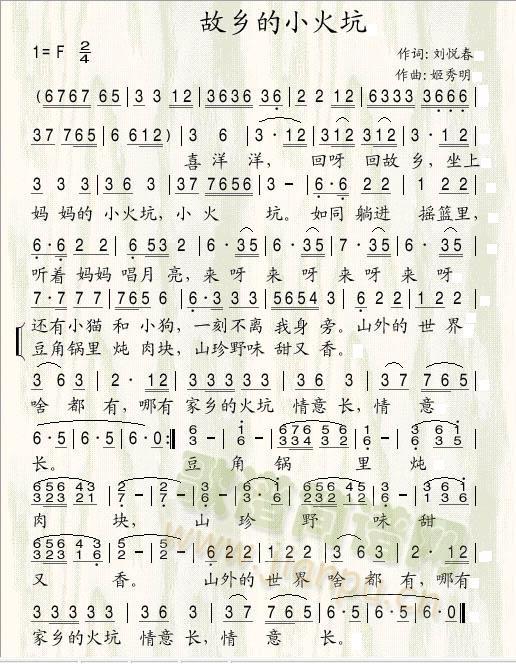 故乡的小火坑
1=F 2/4
作词: 刘悦春
作曲: 姬秀明
(6767 65 | 3 3 12 | 3636 36 | 2 2 12 | 6333 3666
37 765 | 6 612) | 3 6 | 3 · 12 | 312 312 | 3 · 1 2
喜 洋 洋, 回呀 回故 乡, 坐上
3 3 3 | 3 6 3 | 37 7656 | 3 - | 6·6 2 2 | 1 22
妈 妈的 小火坑, 小 火 坑。 如同 躺进 摇篮里,
6·6 2 2 | 6 53 2 | 6 · 35 | 6 · 35 | 7 · 35 | 6 · 35
听着 妈妈 唱月 亮, 来 呀 来 呀 来 呀 来 呀
7·7 7 7 | 765 6 | 6·3 3 3 | 5654 3 | 6 22 | 1 2 2
还有小猫 和 小狗, 一刻不离 我身 旁。山外的 世 界
豆角锅里 炖 肉块, 山珍野味 甜又 香。
3 6 3 | 2 · 12 | 3 3 3 3 | 3 6 3 | 37 765
啥 都 有, 哪有 家乡的火坑 情意 长, 情 意
6·5 | 6·5 | 6·0 :|| 6 - | i - | 676 5 6 | 6 - | 6 3 5
3 6 334 3 2 3 6 i
长。 豆 角 锅 里 炖
656 43 | 2 - | 2 - | 6 - | 3·i | 656 45 | 3 - | 6 6 i
323 21 7 7 3 6 232 12 6 3 3 6
肉 块, 山 珍 野 味 甜
656 43 | 5 - | 5 - | 6 22 | 1 2 2 | 3 6 3 | 2 · 12
323 1 6 2 2
又 香。 山外的 世 界 啥 都 有, 哪有
3 3 3 3 | 3 6 3 | 37 765 | 6·5 | 6·5 | 6·0 ||
家乡的火坑 情意 长, 情 意 长。